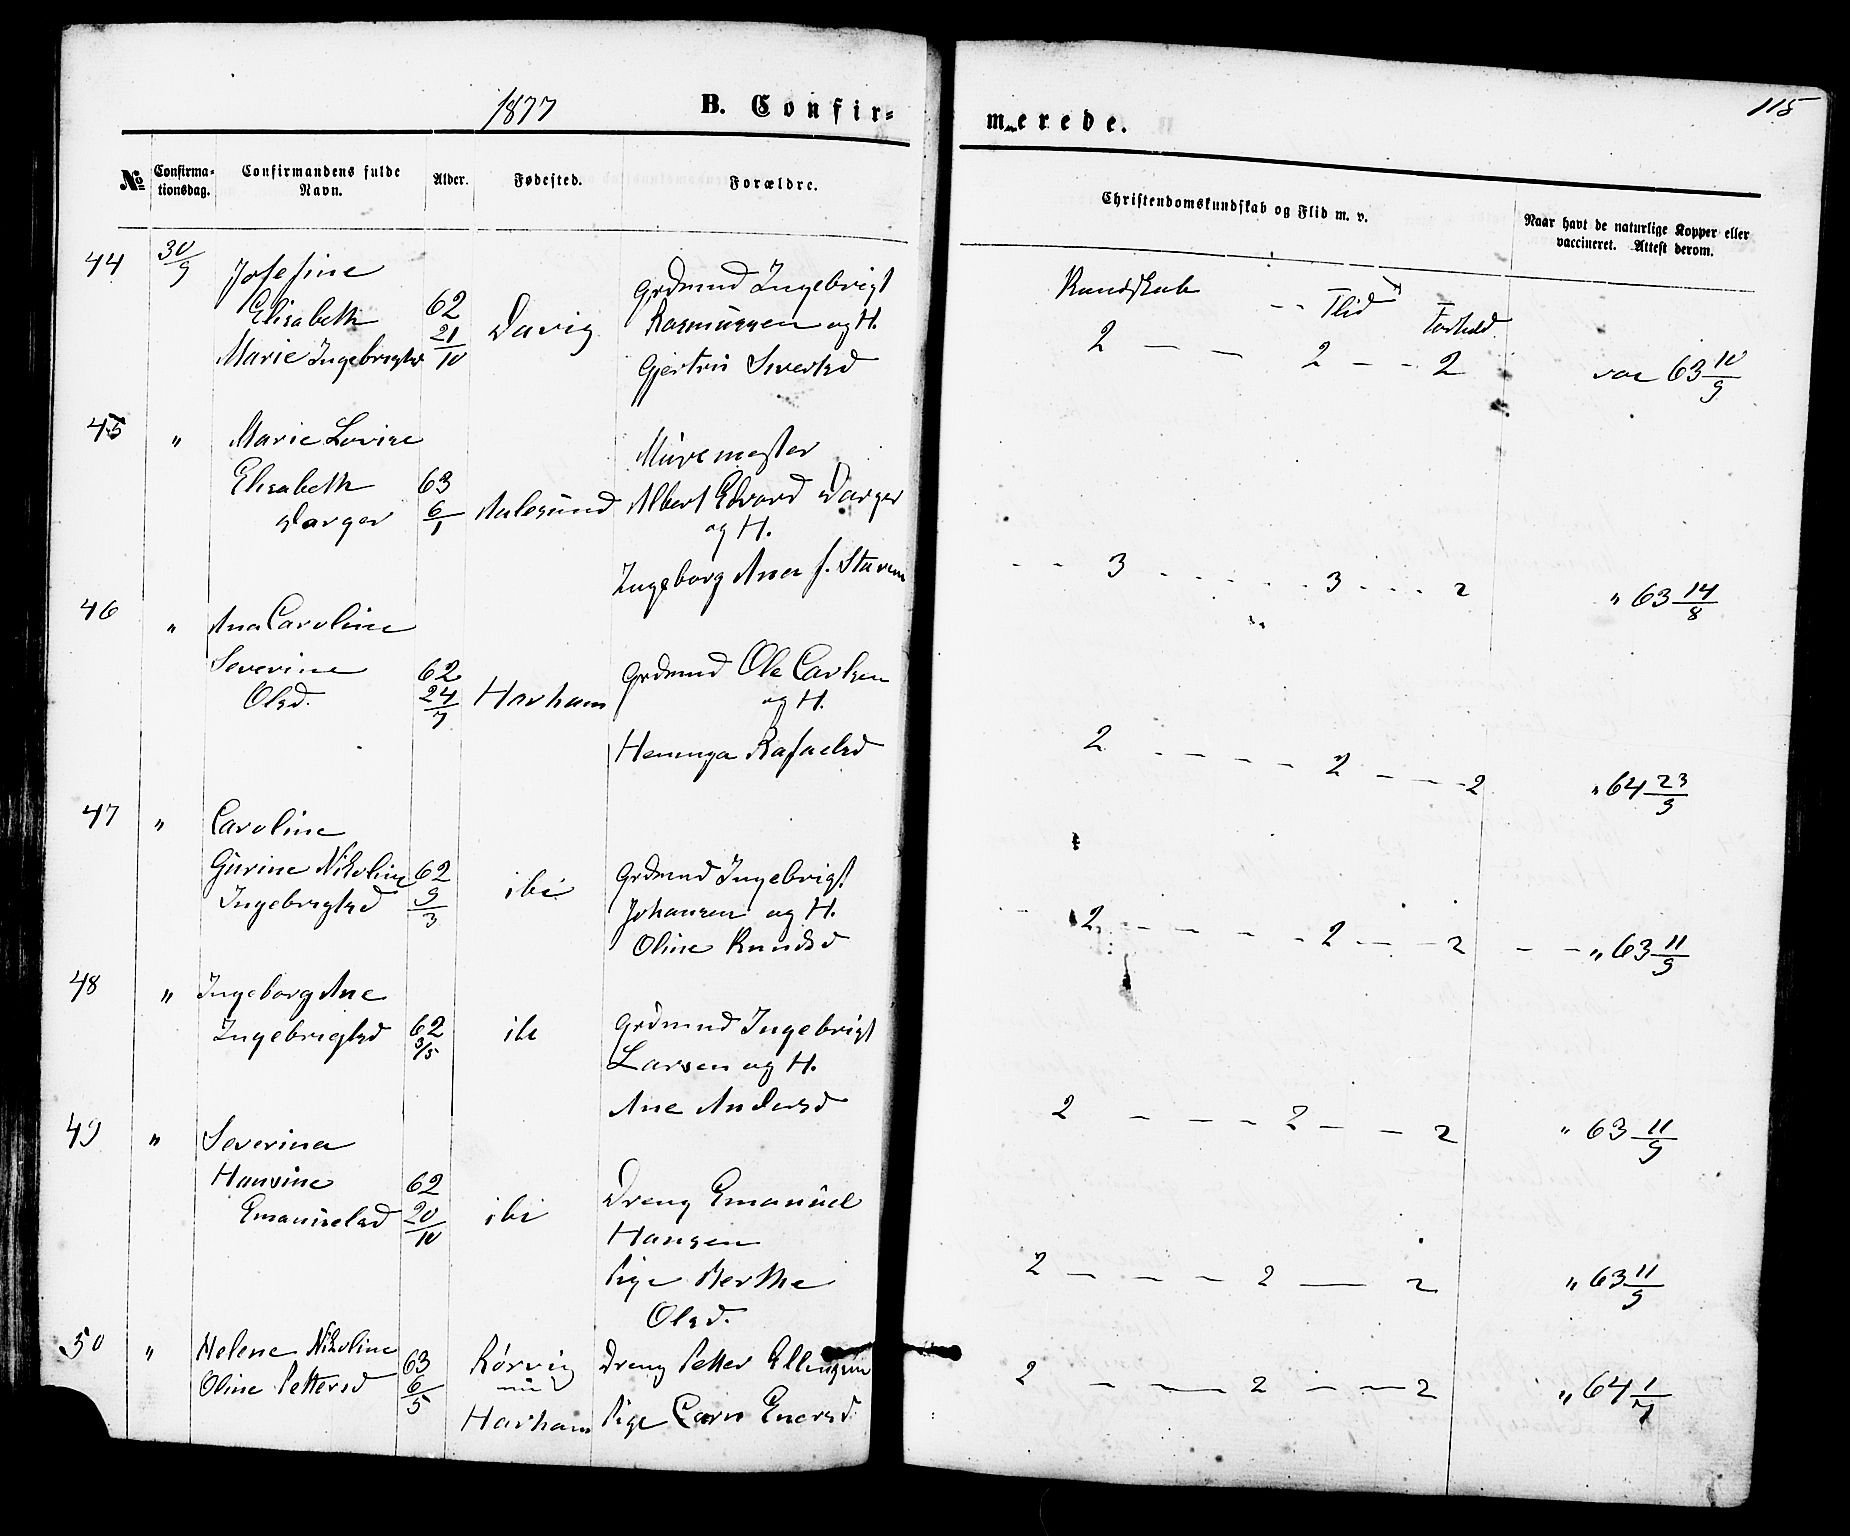 1877 B. Confir-
merede.
115
No
Confirma-
tionsdag.
Confirmandens fulde
Navn.
Alder.
Fødested.
Forældre.
Christendomskundskab og Flid m. v.
Naar havt de naturlige Kopper eller
vaccineret. Attest derom.
44 30/9 Josefine
Elisabeth
Marie Ingebrigtsd
62
21/10
Davig
Grdmnd Ingebrigt
Rasmussen og H.
Gjertrü Sivertsd
Kundskab -- Flid Forhold
2 — — 2 — - 2
vac 63 10/9
45 " Marie Lovise
Elisabeth
Darger
63
6/1
Aalesund
Müremester
Albert Edvard Darger
og H.
Ingeborg Ana f. Staven
3 3 2
" 63 14/8
46 " Ana Caroline
Severine
Olsd.
62
24/7
Harham
Grdmnd Ole Carlsen
og H.
Heninga Rafaelsd
2 2 2
" 64 23/9
47 " Caroline
Gurine Nikoline
Ingebrigtsd
62
9/3
ibi
Grdmnd Ingebrigt
Johansen og H.
Oline Knudsd
2 2 2
" 63 11/9
48 " Ingeborg Ane
Ingebrigtsd
62
3/5
ibi
Grdmnd Ingebrigt
Larsen og H.
Ane Andersd
2 — — — 2 — — 2
" 63 11/9
49 " Severina
Hansine
Emanuelsd
62
20/10
ibi
Dreng Emanüel
Hansen
Pige Berthe
Olsd.
2 — — — 2 — 2
" 63 11/9
50 " Helene Nikoline
Oline Pettersd
63
6/5
Rørvig
nu
Harham
Dreng Petter Ellingsen
Pige Carn Enersd
2 — — 2 — — 2
" 64 1/7